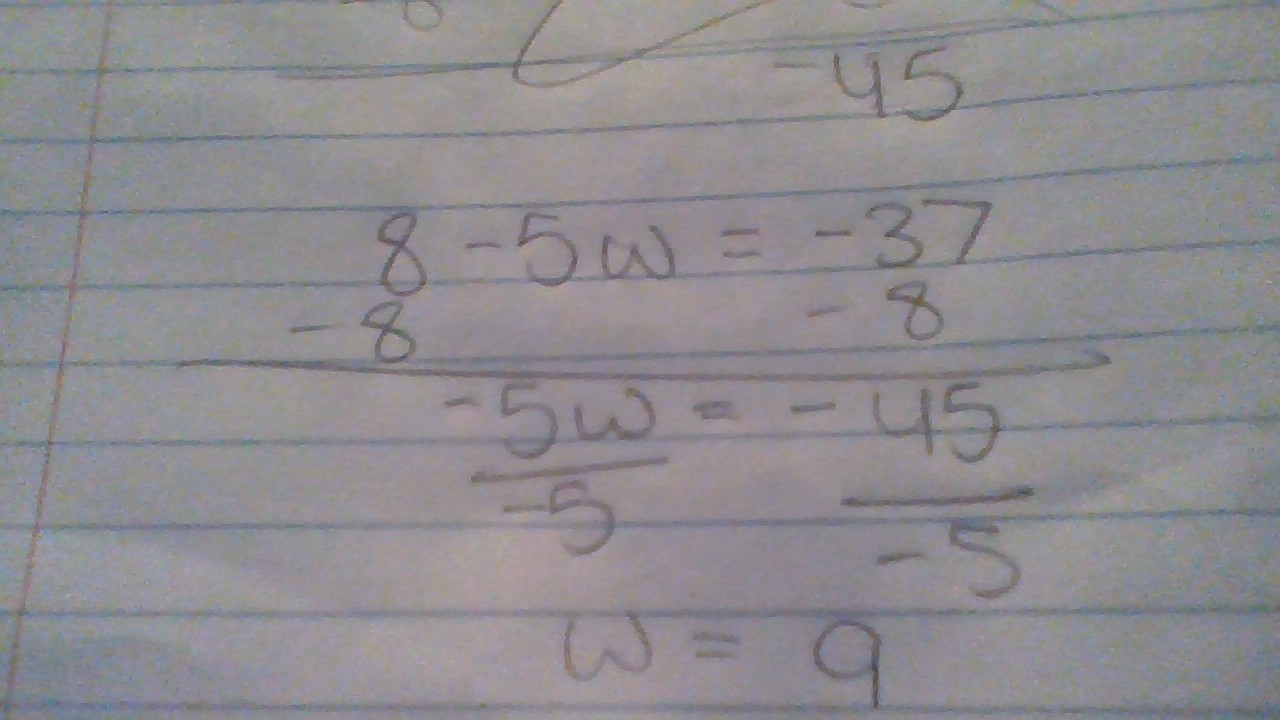 -45
8 -5w = -37
-8 - 8
-5w = - 45
-5 -5
w = 9